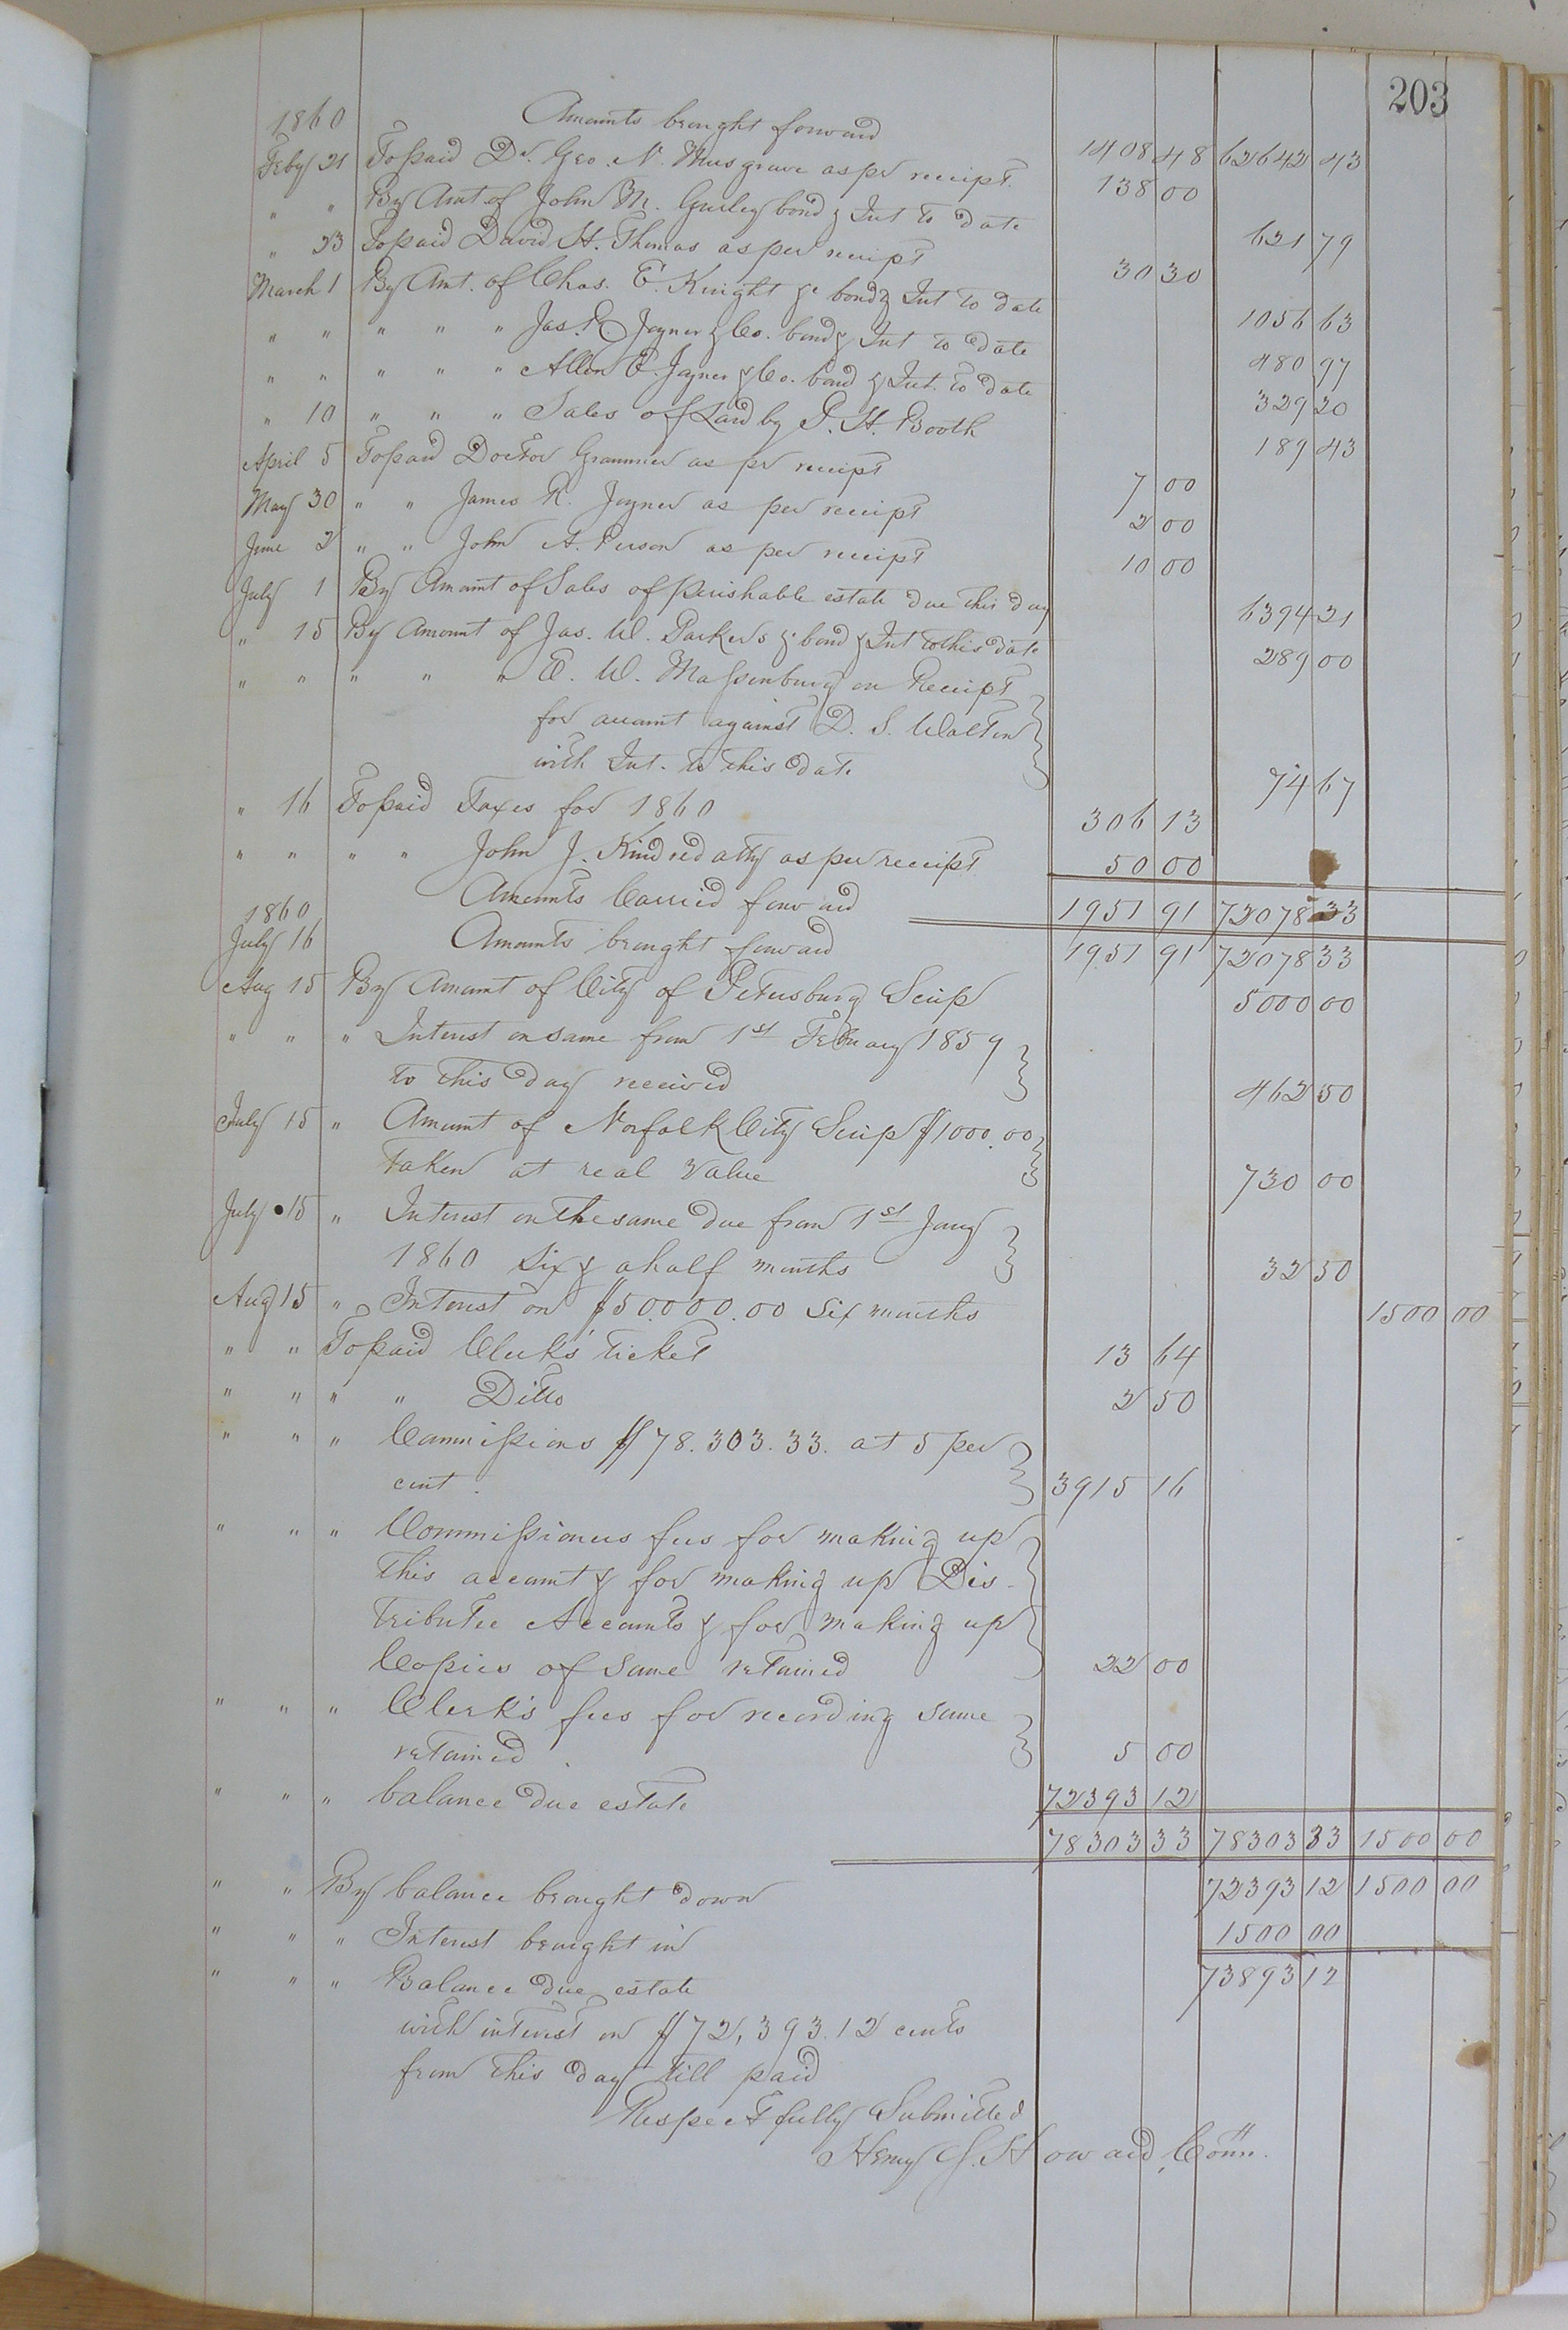 203
1860 Amounts brought forward 1408 48 62642 43
Feby 21 To paid Dr. Geo. N. Musgrave as per receipt. 138 00
" " By Amt of John M. Gurley bond & Int to date 621 79
" 23 To paid David H. Thomas as per receipt 30 30
March 1 By Amt. of Chas. E. Knight &c bond & Int to date 1056 63
" " " " " Jas. R Joyner & Co. bond & Int to date 480 97
" " " " " Allen E. Joyner & Co. bond & Int. to date 329 20
" 10 " " " Sales of Lard by P. H. Booth 189 43
April 5 To paid Doctor Grammer as pr receipt 7 00
May 30 " " James R. Joyner as per receipt 2 00
June 2 " " John A. Person as per receipt 10 00
July 1 By Amount of Sales of perishable estate due this day 6394 21
" 15 By Amount of Jas. W. Parkers &c bond & Int to this date 289 00
" " " " " E. W. Massenburg on Receipt
for account against D. S. Walton
with Int. to this date 74 67
" 16 To paid Taxes for 1860 306 13
" " " " John J. Kindred atty as per receipt 50 00
Amounts Carried forward 1951 91 72078 33
1860
July 16 Amounts brought forward 1951 91 72078 33
Aug 15 By Amount of City of Petersburg Scrip 5000 00
" " " Interest on same from 1st February 1859
to this day received 462 50
July 15 " Amount of Norfolk City Scrip $1000.00
taken at real value 730 00
July 15 " Interest on the same due from 1st Jany
1860 six & a half months 32 50
Aug 15 " Interest on $50.000.00 six months 1500 00
" " To paid Clerk's ticket 13 64
" " " " Ditto 2 50
" " " Commissions $78.303.33. at 5 per
cent. 3915 16
" " " Commissioners fees for making up
this account & for making up Dis-
tributee Accounts & for making up
Copies of same retained 22 00
" " " Clerk's fees for recording same
retained. 5 00
" " " balance due estate 72393 12
78303 33 78303 33 1500 00
" " By balance brought down 72393 12 1500 00
" " " Interest brought in 1500 00
" " " Balance due estate 73893 12
with interest on $72,393.12 cents
from this day till paid
Respectfully Submitted
Henry J. Howard, Comr.